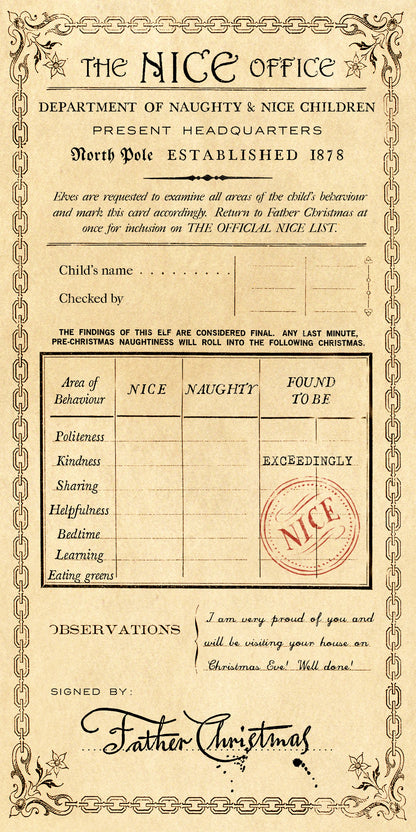 THE NICE OFFICE
DEPARTMENT OF NAUGHTY & NICE CHILDREN
PRESENT HEADQUARTERS
North Pole ESTABLISHED 1878
Elves are requested to examine all areas of the child's behaviour
and mark this card accordingly. Return to Father Christmas at
once for inclusion on THE OFFICIAL NICE LIST.
Child's name . . . . . . . .
Checked by
THE FINDINGS OF THIS ELF ARE CONSIDERED FINAL. ANY LAST MINUTE,
PRE-CHRISTMAS NAUGHTINESS WILL ROLL INTO THE FOLLOWING CHRISTMAS.
Area of Behaviour NICE NAUGHTY FOUND TO BE
Politeness
Kindness EXCEEDINGLY
Sharing
Helpfulness NICE
Bedtime
Learning
Eating greens
OBSERVATIONS
I am very proud of you and
will be visiting your house on
Christmas Eve! Well done!
SIGNED BY:
Father Christmas